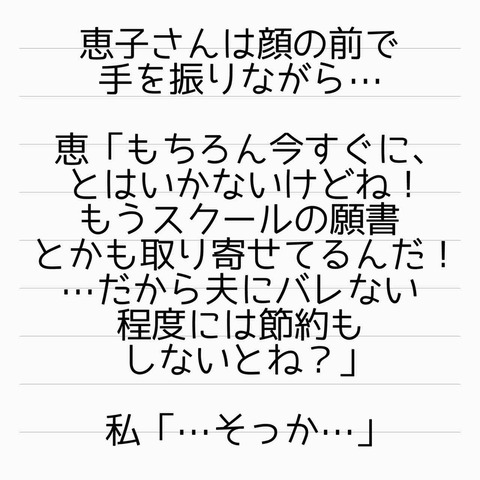 恵子さんは顔の前で
手を振りながら…
恵「もちろん今すぐに、
とはいかないけどね！
もうスクールの願書
とかも取り寄せてるんだ！
…だから夫にバレない
程度には節約も
しないとね？」
私「…そっか…」